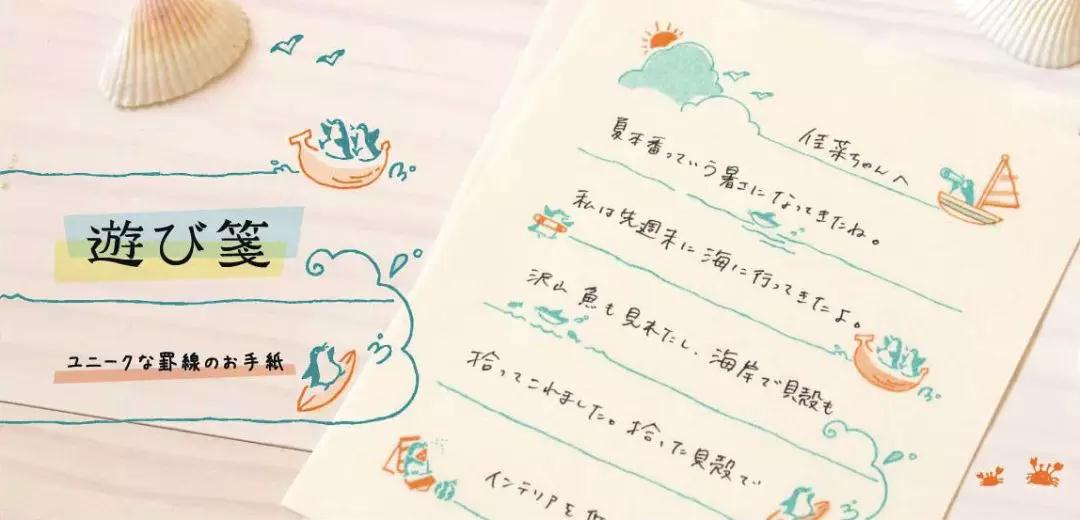 遊び箋
ユニークな罫線のお手紙
佳菜ちゃんへ
夏本番っていう暑さになってきたね。
私は先週末に海に行ってきたよ。
沢山魚も見れたし、海岸で貝殻も
拾ってこれました。拾った貝殻で
インテリアを